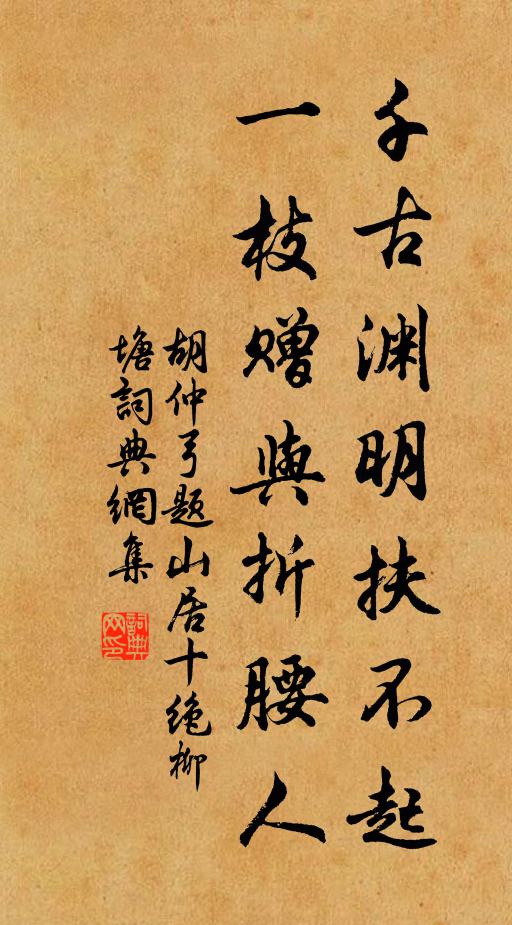 千古渊明扶不起
一枝赠與折腰人
胡仲弓题山居十绝柳
塘詞典網集
詞典
网印